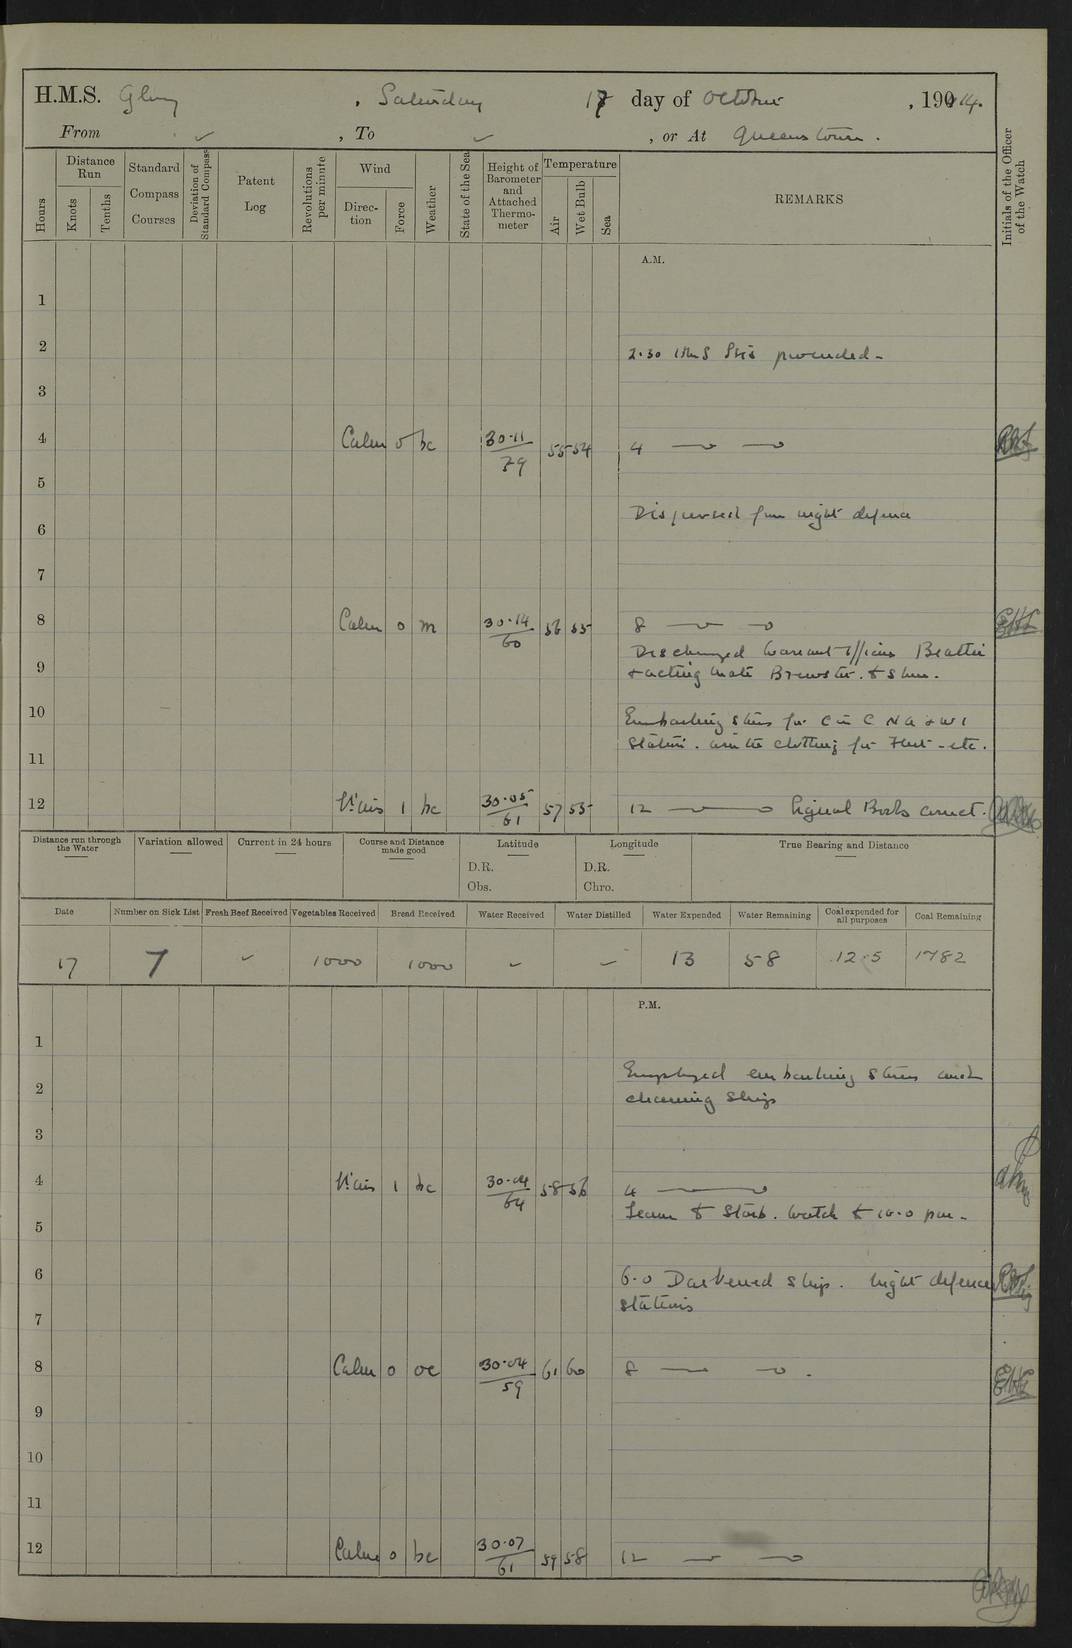 H.M.S. Glory, Saturday 17 day of October, 1914.
From ✓, To ✓, or At Queenstown.
Hours
Distance Run
Knots
Tenths
Standard Compass Courses
Deviation of Standard Compass
Patent Log
Revolutions per minute
Wind
Direction
Force
Weather
State of the Sea
Height of Barometer and Attached Thermometer
Temperature
Air
Wet Bulb
Sea
REMARKS
Initials of the Officer of the Watch
A.M.
1
2
2.30 HMS Isis proceeded -
3
4 Calm 0 bc 30.11/59 55 54 4
5
Dispersed from night defence
6
7
8 Calm 0 m 30.14/60 56 55 8
Discharged Warrant Officers Beattie
9
& acting mate Brewster.
10
Embarking stores for C in C NA & WI
Station. winter clothing for Fleet - etc.
11
12 V'airs 1 bc 30.05/61 57 55 12 Signal Books correct.
Distance run through the Water
Variation allowed
Current in 24 hours
Course and Distance made good
Latitude
D.R.
Obs.
Longitude
D.R.
Chro.
True Bearing and Distance
Date Number on Sick List Fresh Beef Received Vegetables Received Bread Received Water Received Water Distilled Water Expended Water Remaining Coal expended for all purposes Coal Remaining
17 7 ✓ 1000 1000 ✓ ✓ 13 58 12.5 1782
P.M.
1
Employed embarking stores and
2
cleaning ship
3
4 V'airs 1 bc 30.04/64 58 56 4
Leave to Starb. Watch to 10.0 pm.
5
6
6.0 Darkened ship. Night defence
stations
7
8 Calm 0 oc 30.04/59 61 60 8
9
10
11
12 Calm 0 bc 30.07/61 59 58 12